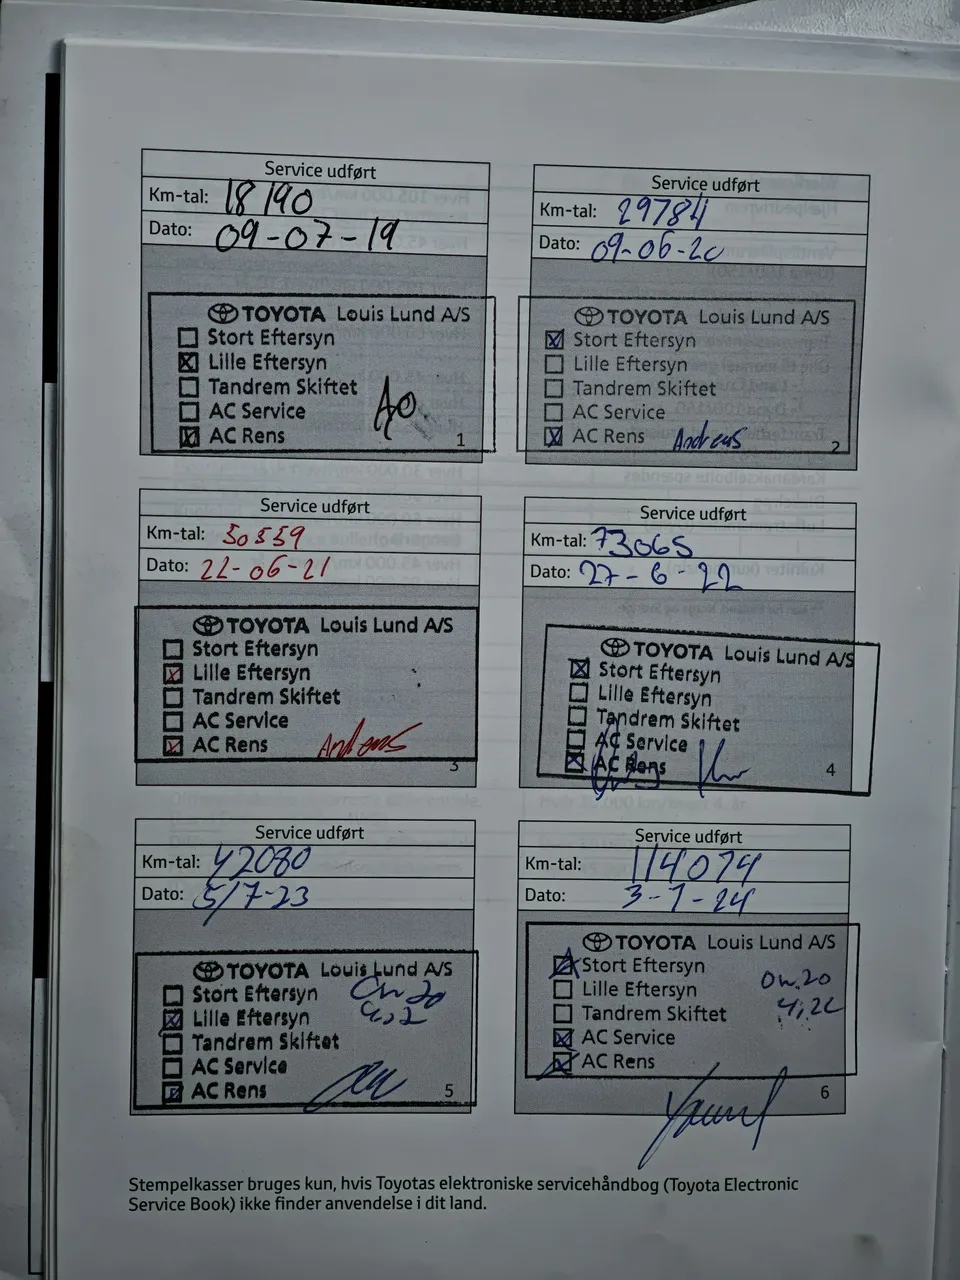 Service udført
Km-tal: 18190
Dato: 09-07-19
TOYOTA Louis Lund A/S
Stort Eftersyn
Lille Eftersyn
Tandrem Skiftet
AC Service
AC Rens
1
Service udført
Km-tal: 29784
Dato: 09-06-20
TOYOTA Louis Lund A/S
Stort Eftersyn
Lille Eftersyn
Tandrem Skiftet
AC Service
AC Rens Andreas
2
Service udført
Km-tal: 50559
Dato: 22-06-21
TOYOTA Louis Lund A/S
Stort Eftersyn
Lille Eftersyn
Tandrem Skiftet
AC Service
AC Rens Andreas
3
Service udført
Km-tal: 73065
Dato: 27-6-22
TOYOTA Louis Lund A/S
Stort Eftersyn
Lille Eftersyn
Tandrem Skiftet
AC Service
AC Rens
4
Service udført
Km-tal: 42080
Dato: 5/7-23
TOYOTA Louis Lund A/S
Stort Eftersyn
Lille Eftersyn
Tandrem Skiftet
AC Service
AC Rens
5
Service udført
Km-tal: 114074
Dato: 3-7-24
TOYOTA Louis Lund A/S
Stort Eftersyn 0w.20
Lille Eftersyn
Tandrem Skiftet
AC Service
AC Rens
6
Stempelkasser bruges kun, hvis Toyotas elektroniske servicehåndbog (Toyota Electronic
Service Book) ikke finder anvendelse i dit land.